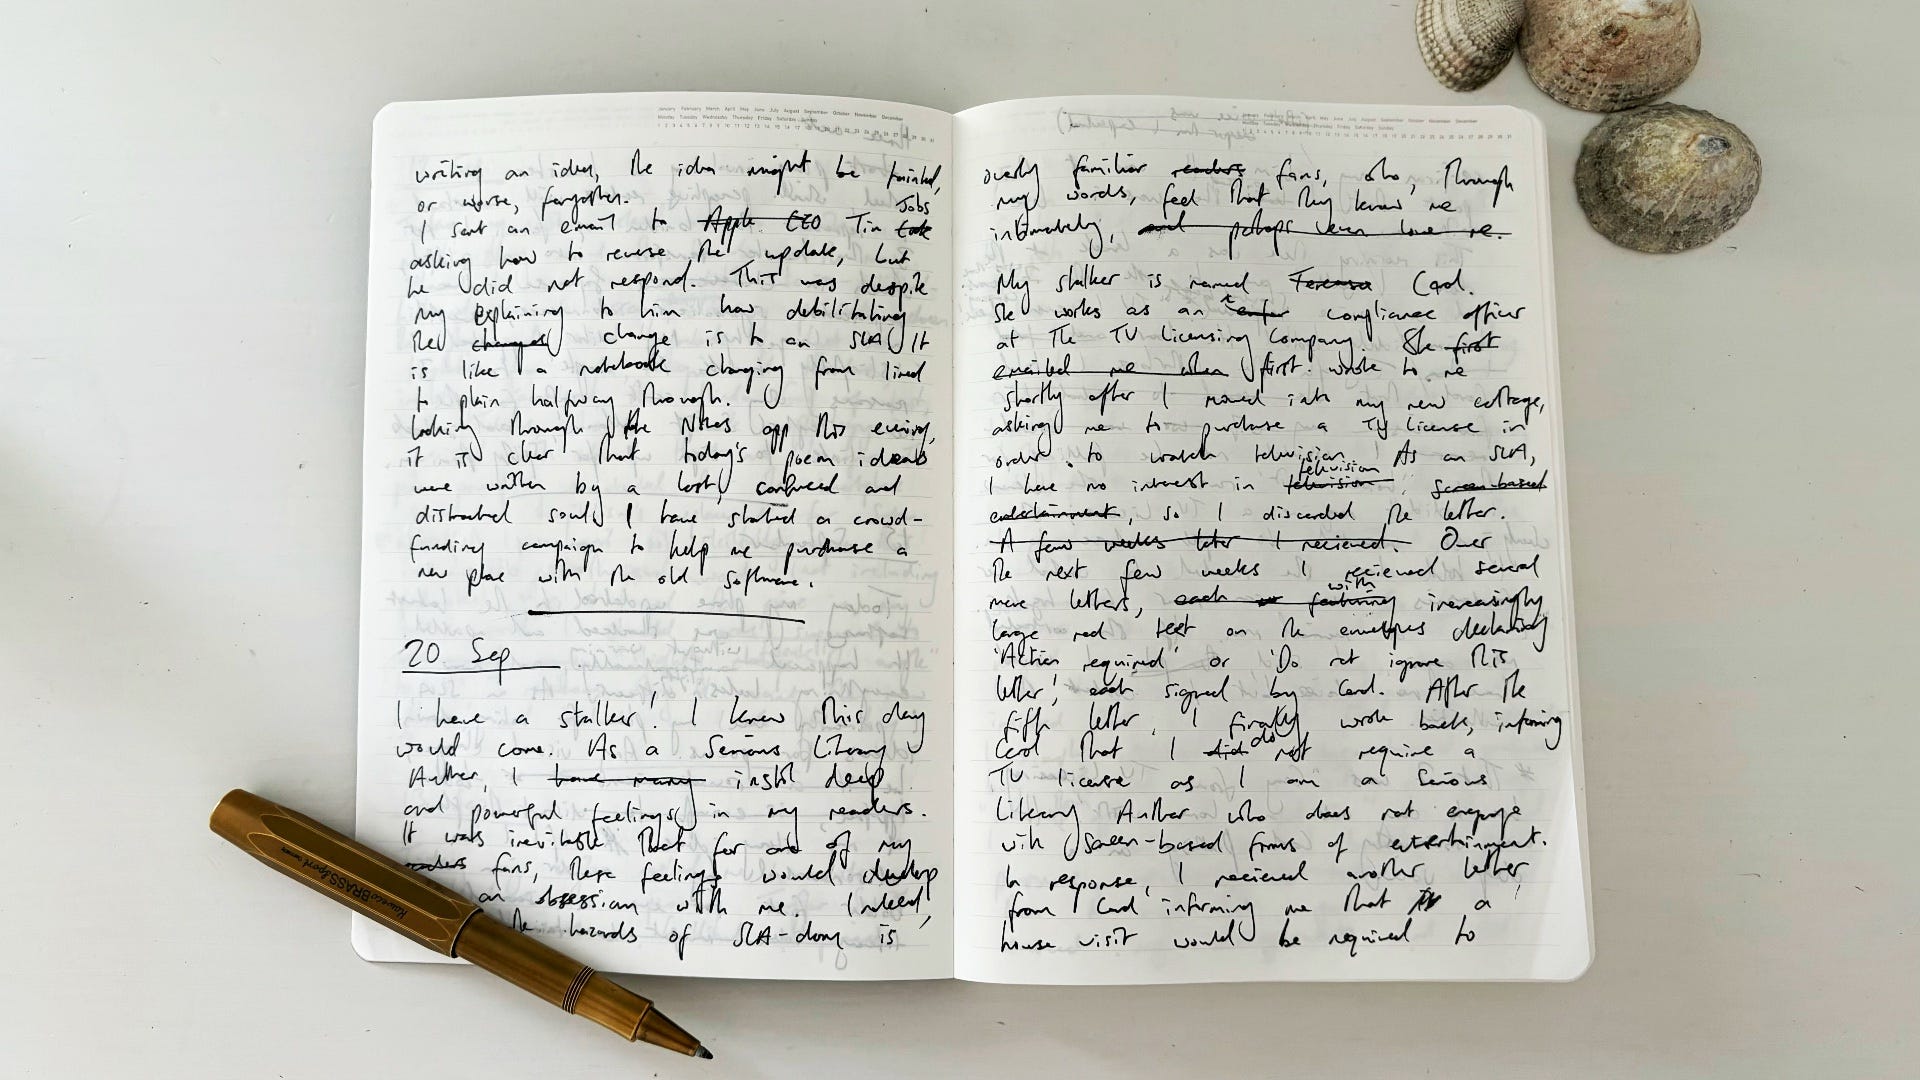 January February March April May June July August September October November December
Monday Tuesday Wednesday Thursday Friday Saturday Sunday
writing an idea, the idea might be tainted,
or worse, forgotten.
I sent an email to Apple CEO Tim Cook Jobs
asking how to reverse the update, but
he did not respond. This was despite
my explaining to him how debilitating
the changes change is to an SLA. It
is like a notebook changing from lined
to plain halfway through.
Looking through the Notes app this evening,
it is clear that today's poem ideas
were written by a lost, confused and
distracted soul. I have started a crowd-
funding campaign to help me purchase a
new phone with the old software.
20 Sep
I have a stalker! I knew this day
would come. As a Serious Literary
Author, I have many instil deep
and powerful feelings in my readers.
It was inevitable that for one of my
readers fans, these feelings would develop
an obsession with me. Indeed,
the hazards of SLA-dom is
overly familiar readers fans, who, through
my words, feel that they know me
intimately, and perhaps even love me.
My stalker is named Teresa Carol.
She works as an compliance officer
at The TV Licensing Company. She first
emailed me when first wrote to me
shortly after I moved into my new cottage,
asking me to purchase a TV License in
order to watch television. As an SLA,
I have no interest in television television, screen-based
entertainment, so I discarded the letter.
A few weeks later I recieved. Over
the next few weeks I recieved several
more letters, each featuring with increasingly
large red text on the envelopes declaring
'Action required' or 'Do not ignore this
letter', each signed by Carol. After the
fifth letter, I finally wrote back, informing
Carol that I did do not require a
TV license as I am a Serious
Literary Author who does not engage
with screen-based forms of entertainment.
In response, I recieved another letter
from Carol informing me that a
house visit would be required to
KawecoBRASSsport